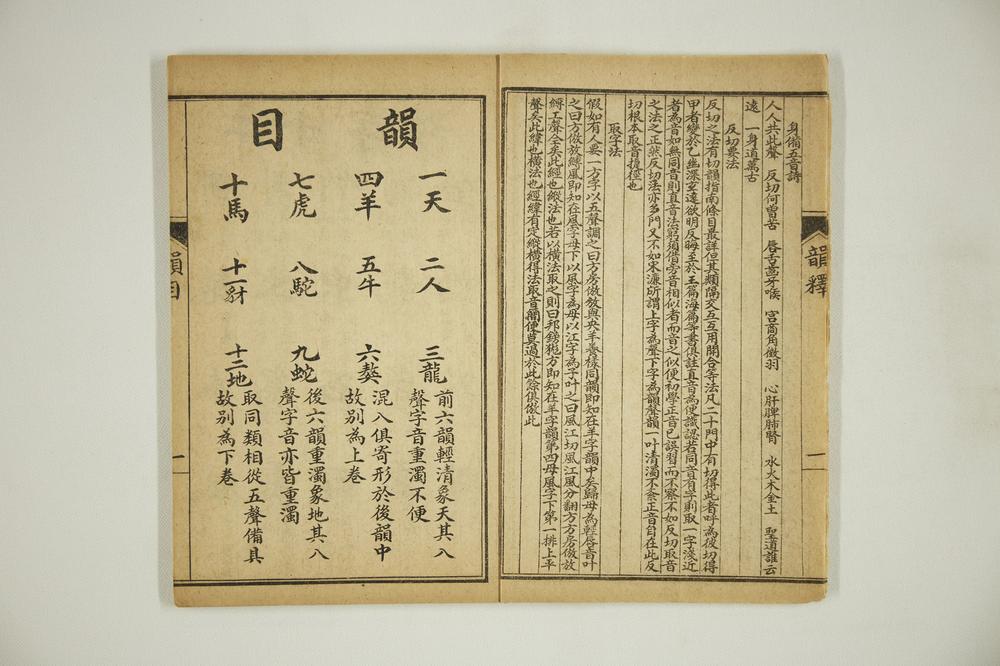 身備五音詩
人人共此聲　反切何曾苦　唇舌齒牙喉　宮商角徵羽　心肝脾肺腎　水火木金土　聖道誰云
遠　一身道萬古
反切要法
反切之法有切韻指南條目最詳但其類隔交互用開合等法凡二十門中有切得此者呼為彼切得
甲者變於乙幽深玄遠欲明反晦至於玉篇海篇等書俱註直音為便識認若同音有字則取一字淺近
者為音如無同音則直音法窮須借旁音相似者而音之似便初學正音已誤習而不察不如反切取音
之法之正然反切法亦多門又不如宋濂所謂上字為聲下字為韻聲韻一叶清濁不紊正音自在此反
切根本取音捷徑也
取字法
假如有人要一方字以五聲調之曰方房倣放與央羊養樣同韻即知在羊字韻中矣歸母為輕唇音叶
之曰方倣放縛風即知在風字母下以風字為母以江字為子叶之曰風江切風江風分翻方方房倣放
縛五聲全矣此經也縱法也若以橫法取之則曰邦鎊𠀋方即知在羊字韻第四母風字下第一排上平
聲矣此緯也橫法也經緯有定縱橫得法取音簡便莫過於此餘俱倣此
韻釋
一
韻目
一天　二人　三龍　前六韻輕清象天其入
聲字音重濁不便
四羊　五牛　六獒　混入俱寄形於後韻中
故別為上卷
七虎　八駝　九蛇　後六韻重濁象地其入
聲字音亦皆重濁
十馬　十一豺　十二地　取同類相從五聲備具
故別為下卷
韻目
一